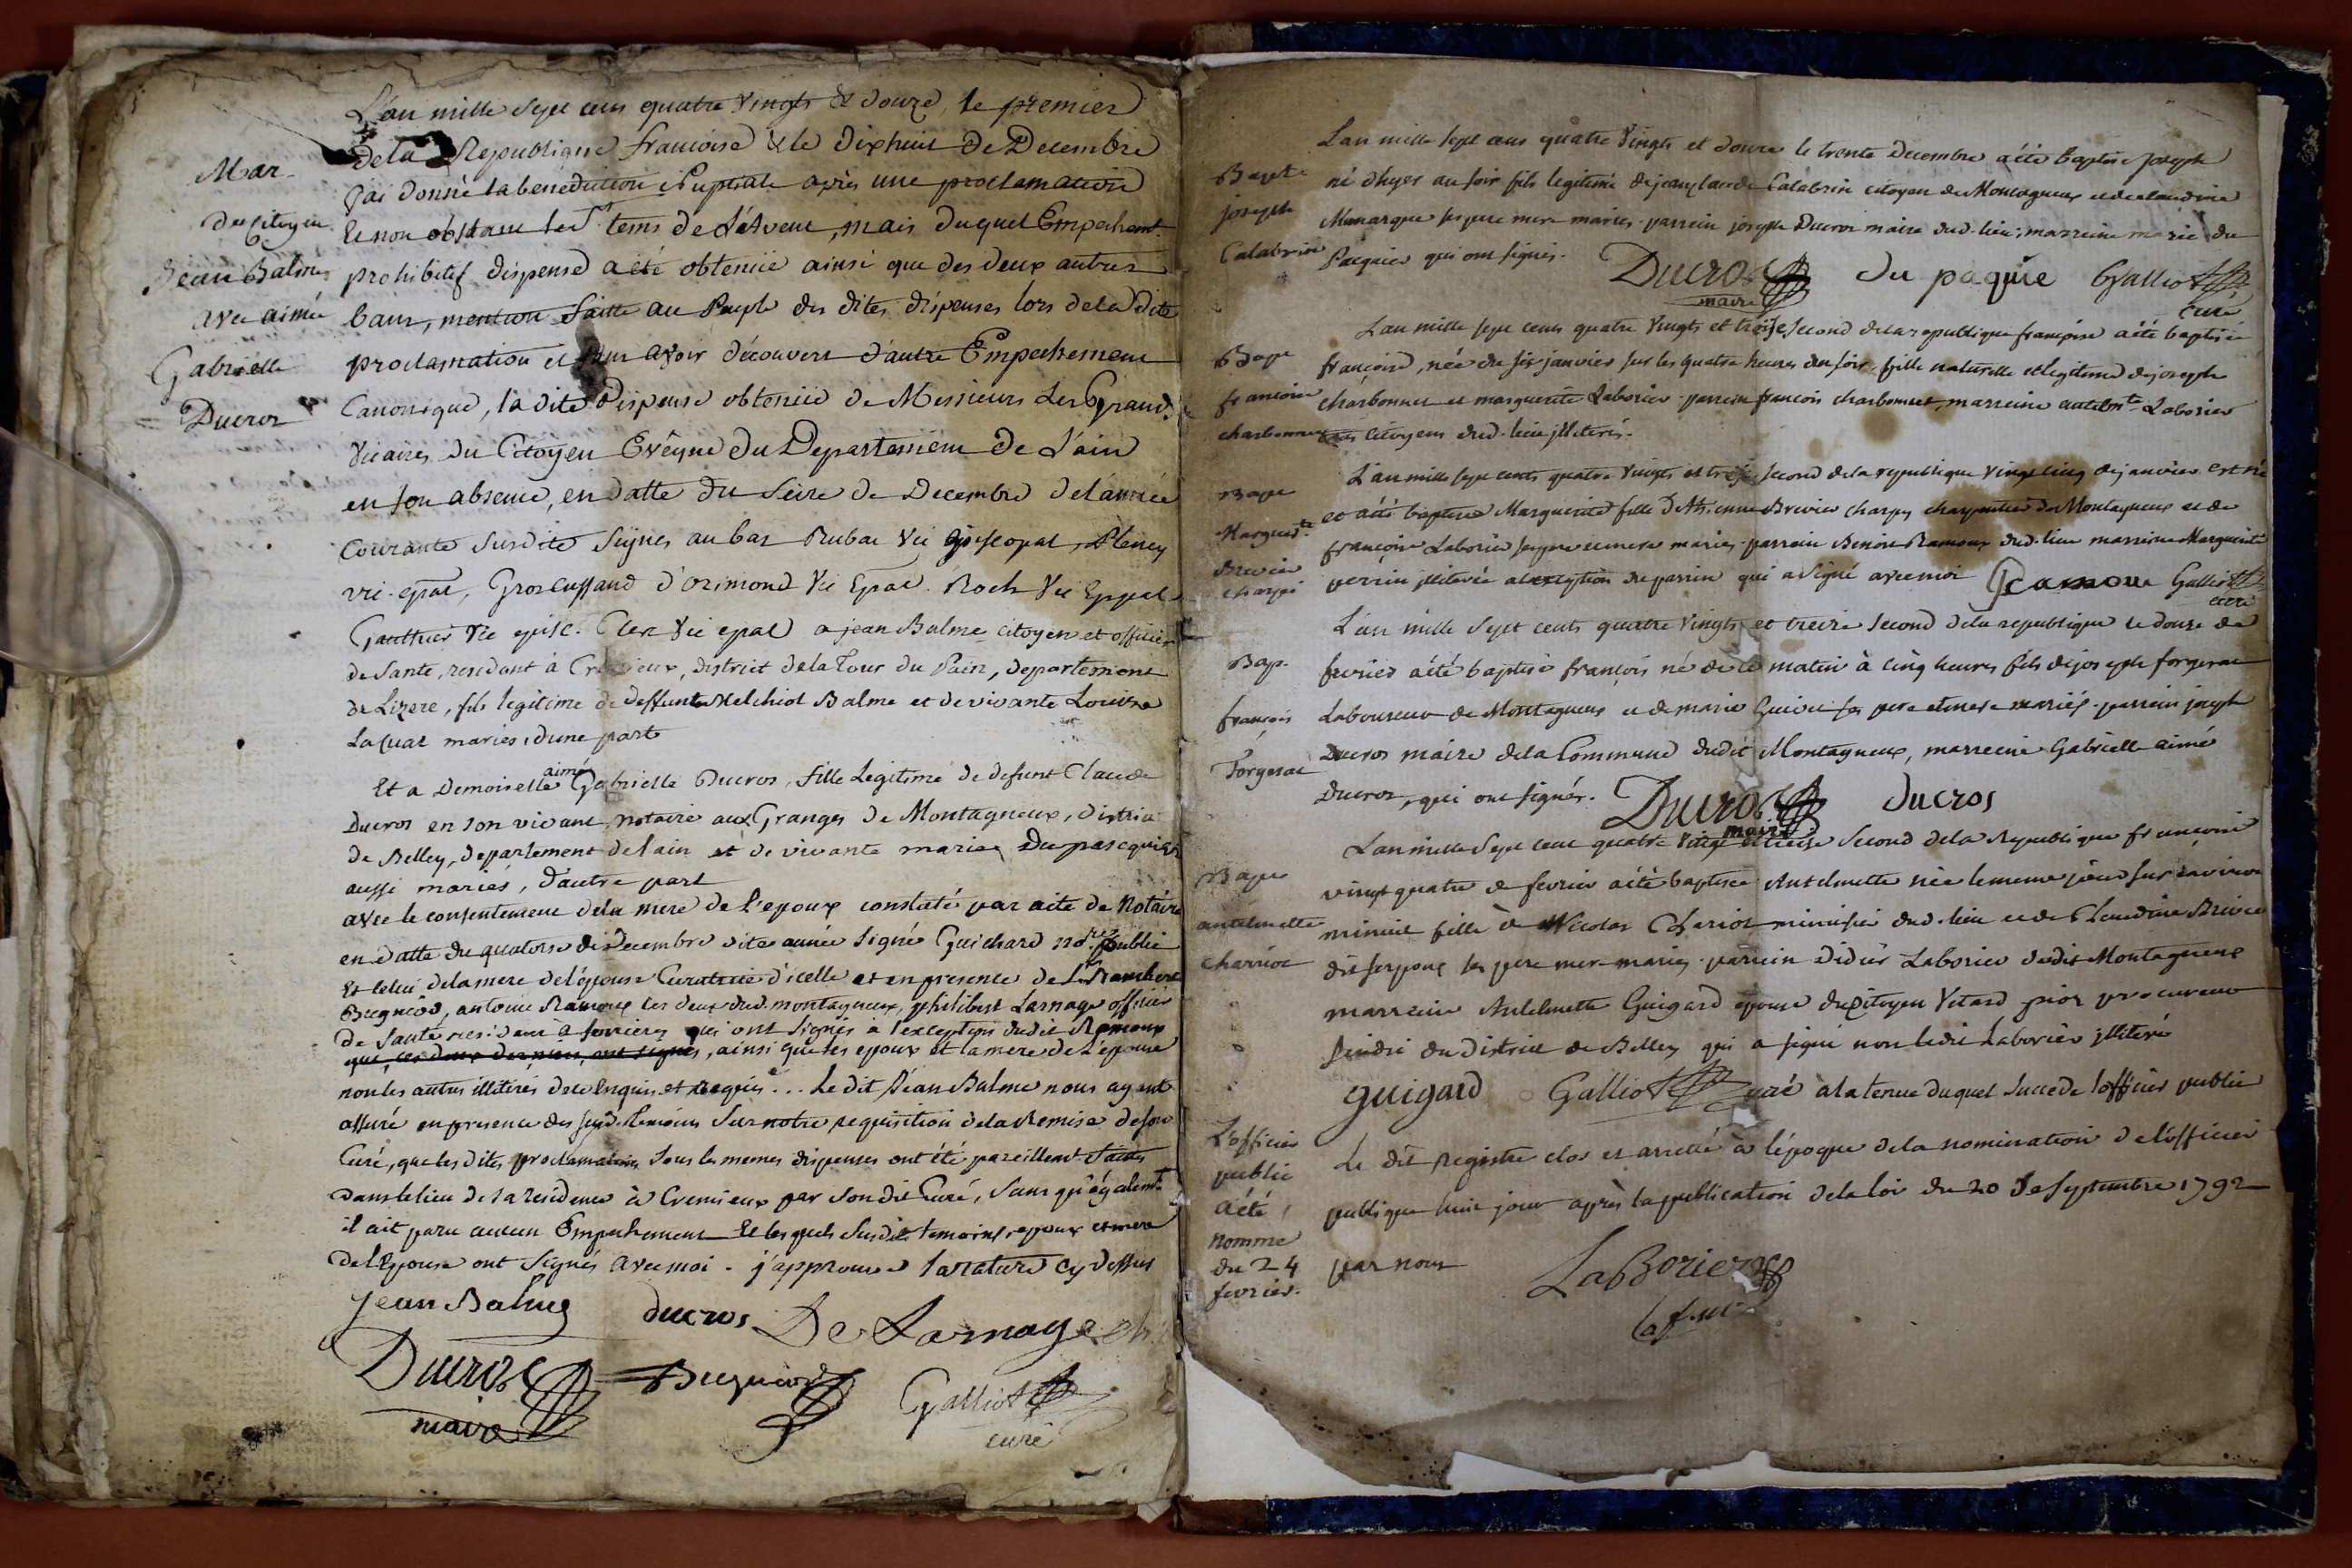 L'an mille Sept cens quatre vingts & douze, le premier
de la Republique francoise & le dixhuit De Decembre
Mar.
j'ai donné la benediction Nuptiale après une proclamation
du Citoyen
& non obstant les tems de L'Avent, mais duquel Empechemt.
Jean Balme
prohibitif dispense a été obtenüe ainsi que des deux autres
avec aimée
bans, mention faitte au Peuple des dites dispenses lors de la dite
Gabrielle
proclamation et sans avoir découvert d'autre Empechement
Ducros
Canonique, la dite Dispense obtenüe de Messieurs Les Grands
Vicaires du Citoyen Evêque du Departement De L'ain
en son absence, en datte du Seize de Decembre de l'année
Courante Susdite Signés au bas Rubat Vic Episcopal,
vic. epal, d'orimond Vic Epal. Roch Vic Eppal
Gauthier Vic episc. Clex Vic epal a jean Balme citoyen et officier
de Santé, residant à Cremieux, district de la Tour du Pain, departement
de Lizere, fils legitime de deffunt Melchiol Balme et de vivante Louise
Laqual mariés, d'une part
Et a Demoiselle aimé Gabrielle Ducros, fille Legitime de defunt Claude
Ducros en son vivant, notaire aux Granges de Montagneux, district
de Belley, departement de lain et de vivante marie Dupascquier
aussi mariés, d'autre part
avec le consentement de la mere de l'epoux constaté par acte de Notaire
en datte du quatorse de Decembre dite année Signé Guichard nore. public
et celui de la mere de l'épouse Curatrice d'icelle et en presence de Sr. Rambert
Bugniod, antoine Ramoux les deux dud. montagneux, philibert Larnage officier
de Santé residant à qui ont signés a l'exception dudit Ramoux
que, ces deux derniers, ont signés, ainsi que les epoux et la mere de L'epouse
non les autres illiterés de ce Enquis et Requis... Le dit Jéan Balme nous ayant
assuré en presence des susd. temoins Sur notre requisition de la Remise de son
Curé, que les dites proclamations Sous les memes dispenses ont été pareillemt. faites
dans le lieu de sa residence à Cremieux par Son dit Curé, Sans qu'égalemt.
il ait paru aucun Empechement Et les quels Susdits temoins, epoux et mere
de l'Epouse ont Signés avec moi. j'approuve la rature cy dessus
Jean Balme ducros De Larnage
Ducros Bugniod Galliot
maire curé
L'an mille sept cens quatre vingts et douze le trente Decembre a été baptisé joseph
Bapt.
né d'hyer au soir fils legitime de jean claude Calabrin citoyen de Montagneux et de claudine
joseph
Munarque ses pere mere mariés. parrein joseph Ducros maire dud. lieu; marreine marie du
Calabrin
Paquier qui ont signés.
Ducros du paquïe Galliot
maire curé
L'an mille sept cents quatre vingts et treize second de la republique françoise a été baptisée
Bapt
françoise, née du six janvier sur les quatre heures du soir, fille naturelle et legitime de joseph
francoise
charbonnet et marguerite Laborier parrein francois charbonnet, marreine antelmte. Laborier
charbonnet
tous Citoyens dud. lieu illiterés.
L'an mille sept cents quatre vingts et treize second de la republique vingt cinq de janvier est née
Bapt
et a été baptisée Marguerite fille d'Ettienne Brevier charpy charpentier de Montagneux et de
Marguerte.
françoise Laborier ses pere et mere mariés. parrein Benoit Ramoux dud. lieu marreine Marguerite
Brevier
charpi
perrin illiterée a l'exception du parrin qui a signé avec moi Ramoux Galliot
curé
L'an mille Sept cents quatre vingts et treize second de la republique le douze de
Bap.
fevrier a été baptisé françois né de ce matin à cinq heures fils de joseph forgerat
françois
Laboureur de Montagneux et de marie Guivie ses pere et mere mariés. parrein joseph
Forgerat
Ducros maire de la Commune dudit Montagneux, marreine Gabrielle aimé
Ducros, qui ont signés. Ducros ducros
maire
L'an mille Sept cent quatre vingt et treize second de la Republique françoise
Bapt
vingt quatre de fevrier a été baptisée Antelmette née le meme jour sur environ
antelmette
minuit fille à Nicolas Charriot dud. lieu et de Claudine Brivet
charriot
dit ses pere mere mariés. parrein Didier Laborier dudit Montagneux
marreine Antelmette Guigard epouse du Citoyen Vetard procureur
sindic du district de Belley qui a signé non ledit Laborier illiteré
guigard Galliot curé a la tenue duquel succede l'officier public
L'officier
public
a été
nommé
du 24
fevrier.
Le dit registre clos et arretté à l'époque de la nomination de l'officier
publique huit jour après la publication de la loi du 20 de Septembre 1792
par nous LaBorier